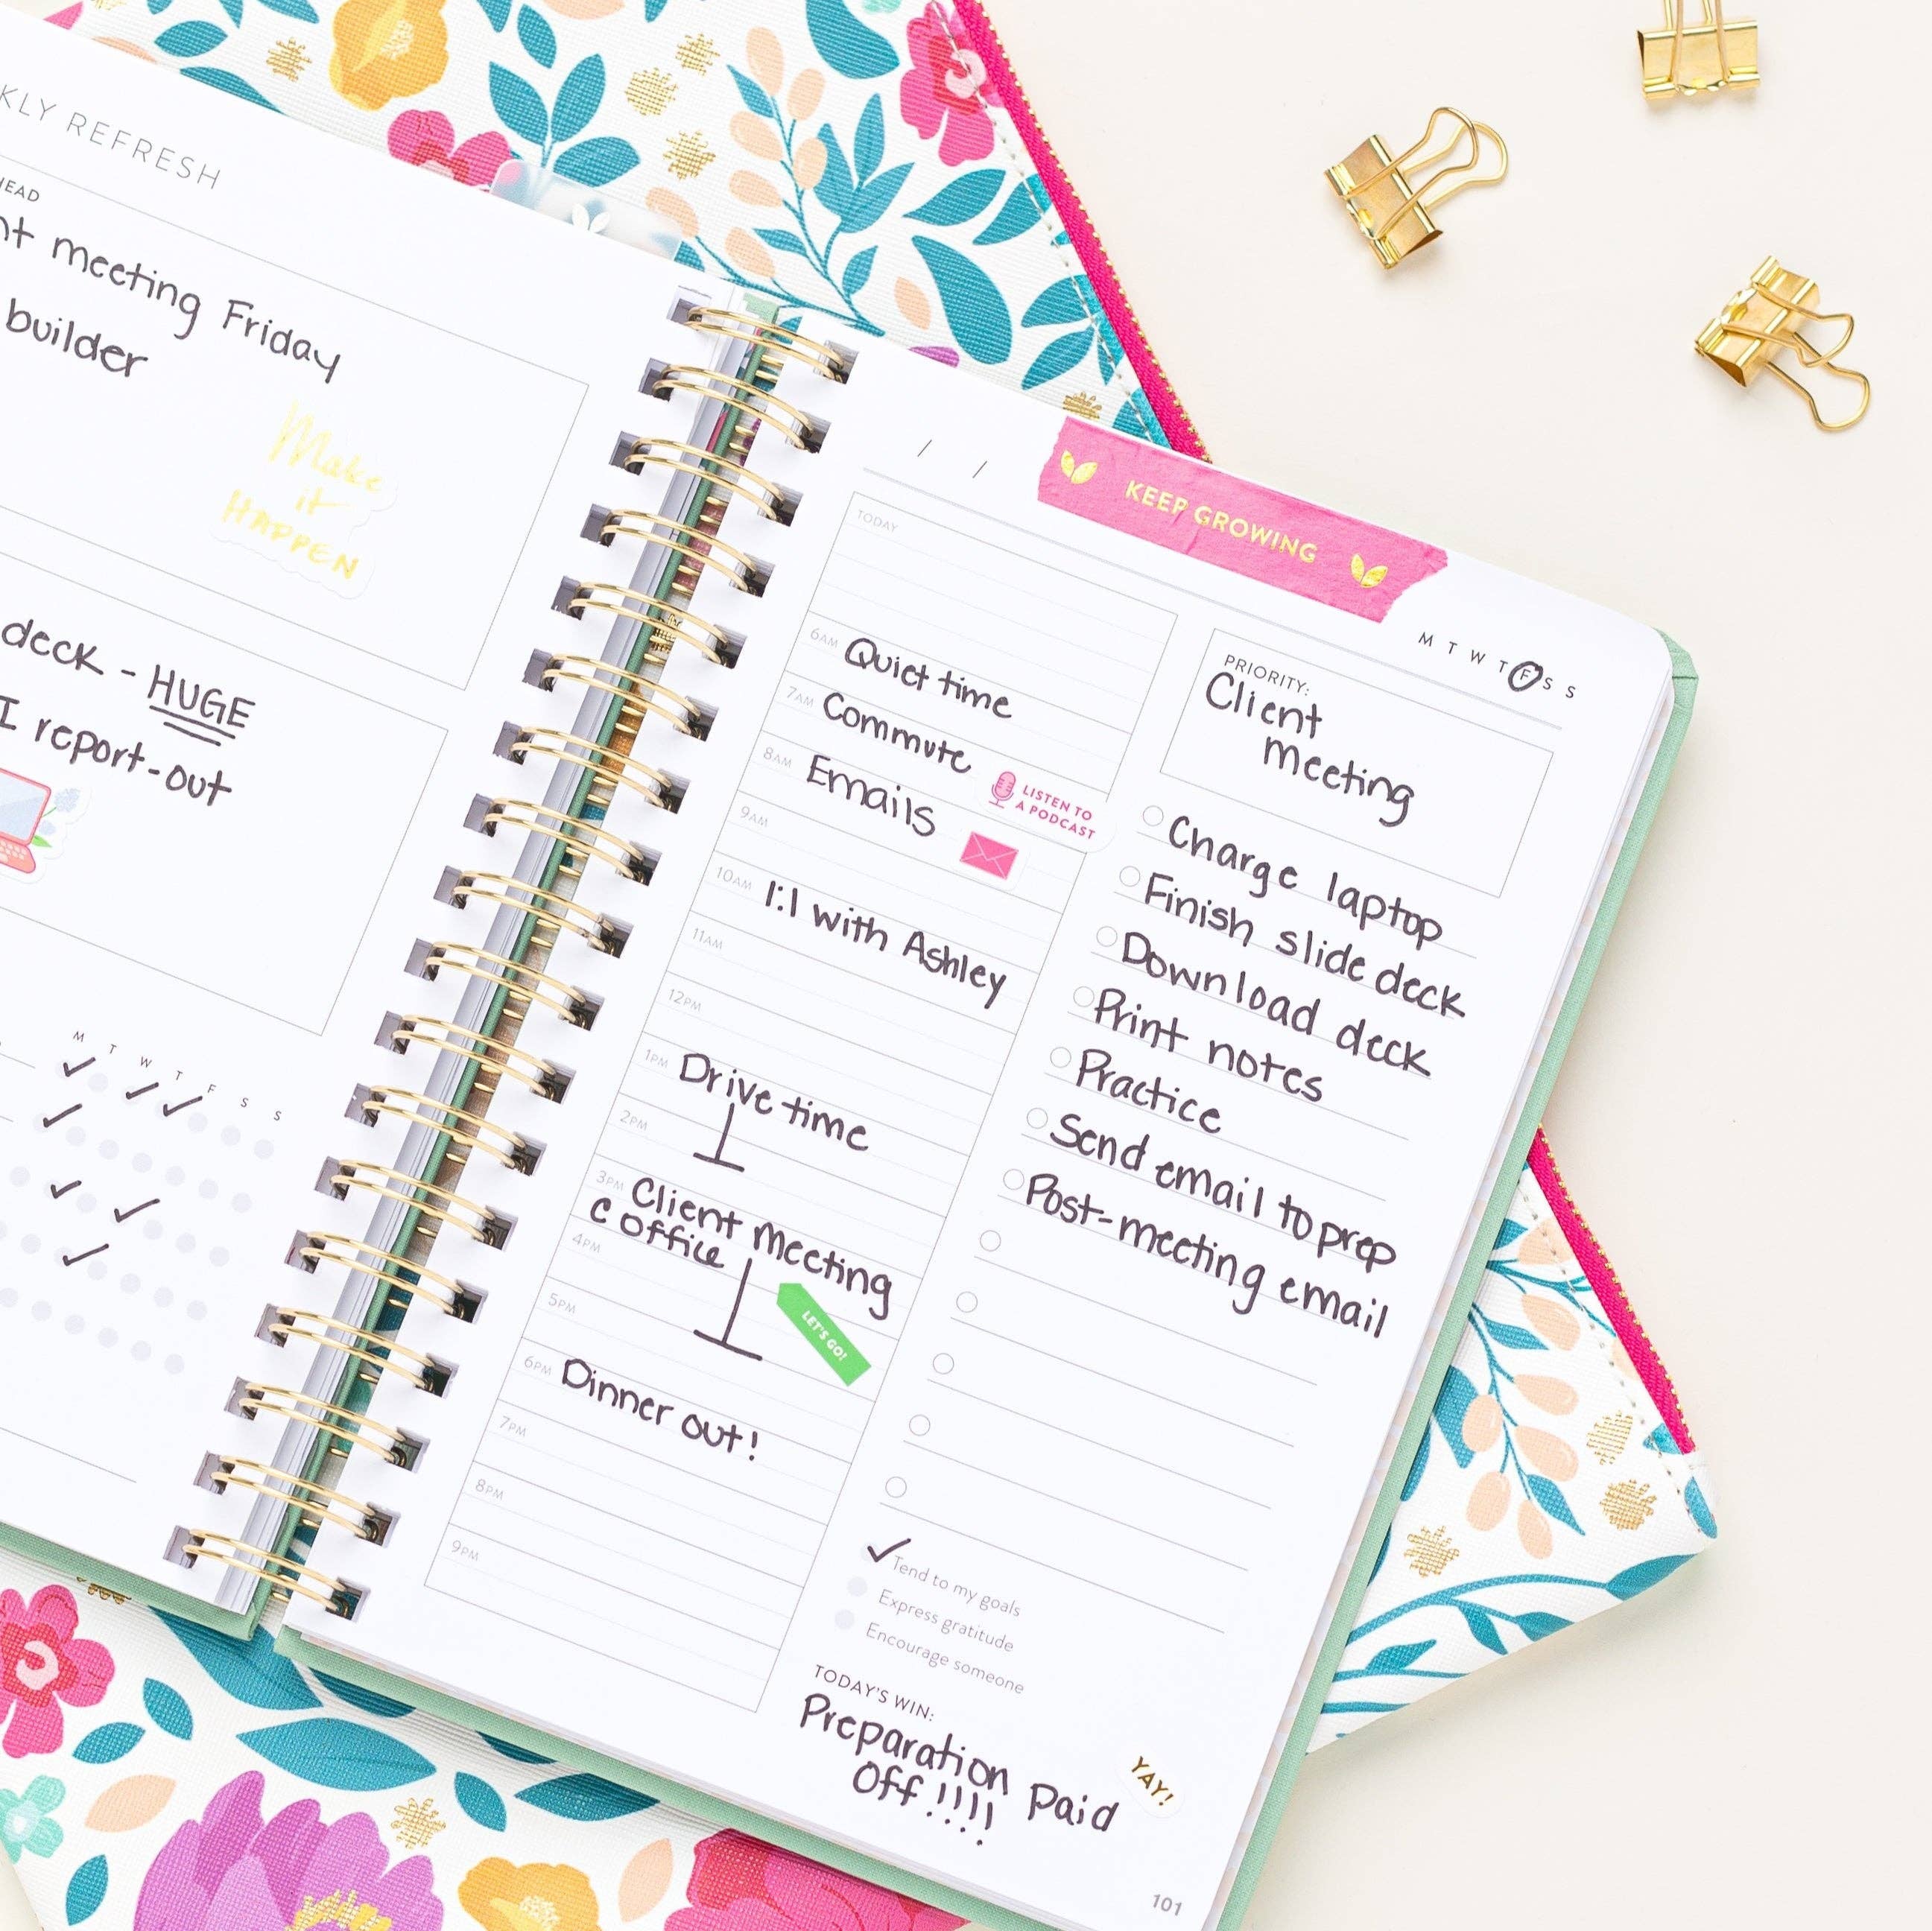 KLY REFRESH
HEAD
meeting Friday
builder
Make
it
HAPPEN
deck - HUGE
I report-out
M T W T F S S
/ /
KEEP GROWING
M T W T F S S
TODAY
6AM Quiet time
7AM Commute
LISTEN TO
A PODCAST
8AM Emails
9AM
10AM 1:1 with Ashley
11AM
12PM
1PM Drive time
2PM
3PM Client Meeting
C Office
4PM
LET'S GO!
5PM
6PM Dinner out!
7PM
8PM
9PM
PRIORITY:
Client
Meeting
Charge laptop
Finish slide deck
Download deck
Print notes
Practice
Send email to prep
Post-meeting email
Tend to my goals
Express gratitude
Encourage someone
TODAY'S WIN:
Preparation Paid
Off!!!!
YAY!
101